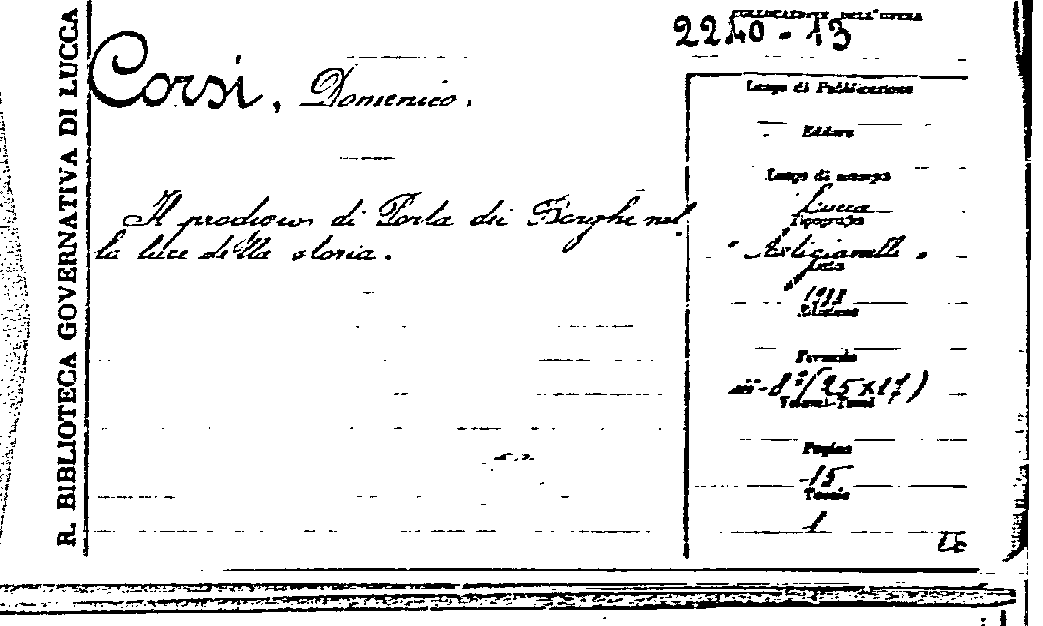 R. BIBLIOTECA GOVERNATIVA DI LUCCA
COLLOCAZIONE DELL'OPERA
2240-13
Corsi, Domenico.
Il prodigio di Porta dei Borghi nel
la luce della storia.
Luogo di Pubblicazione
Editore
Luogo di stampa
Lucca
Tipografia
"Artigianelli"
Data
Edizione
Formato
in-8° (25x17)
Volumi-Tomi
Pagine
15
Tavole
1